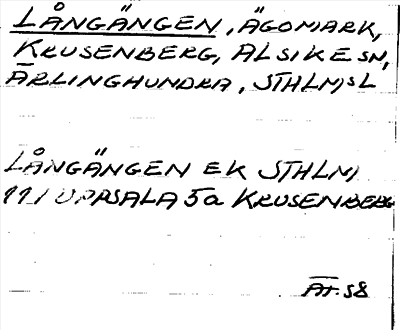 LÅNGÄNGEN, ÄGOMARK,
KRUSENBERG, ALSIKE SN,
ÄRLINGHUNDRA, STHLMSL
LÅNGÄNGEN EK STHLM
111 UPPSALA 5a KRUSENBERG
ÄT. 58